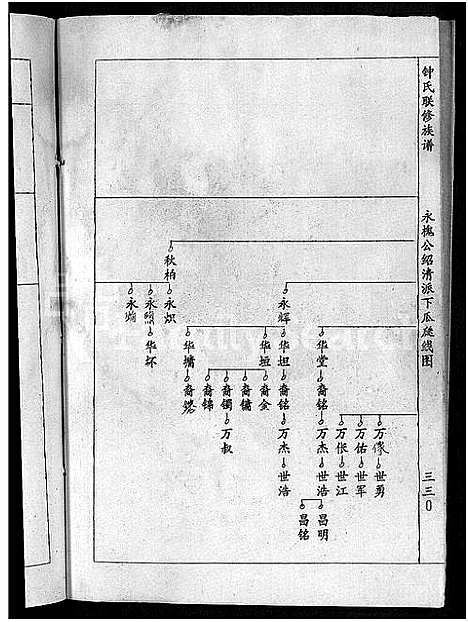 钟氏联修族谱
永槐公绍清派下瓜瓞线图
三三〇
万像 世勇
万佑 世军
万依 世江
华堂 裔铭 万杰 世浩 昌明
昌铭
永辉 华坦 裔铭 万杰 世浩
华垣 裔金
裔镛
裔镯 万叔
裔锦
华墉 裔
秋柏 永炽
永 华坏
永